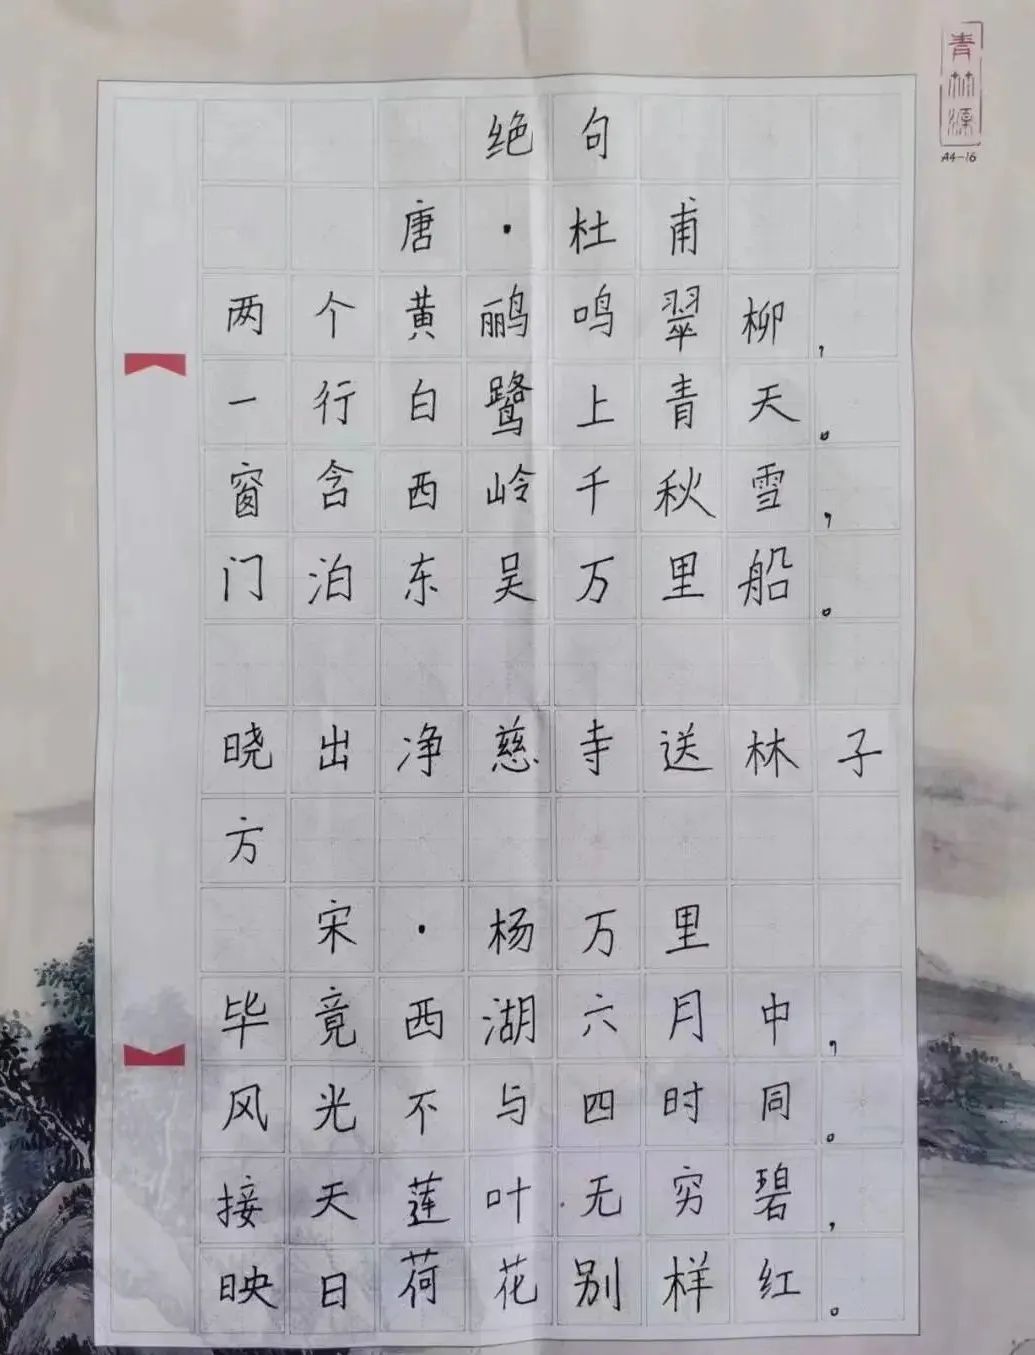 青林源
A4-16
绝句
唐·杜甫
两个黄鹂鸣翠柳，
一行白鹭上青天。
窗含西岭千秋雪，
门泊东吴万里船。
晓出净慈寺送林子
方
宋·杨万里
毕竟西湖六月中，
风光不与四时同。
接天莲叶无穷碧，
映日荷花别样红。